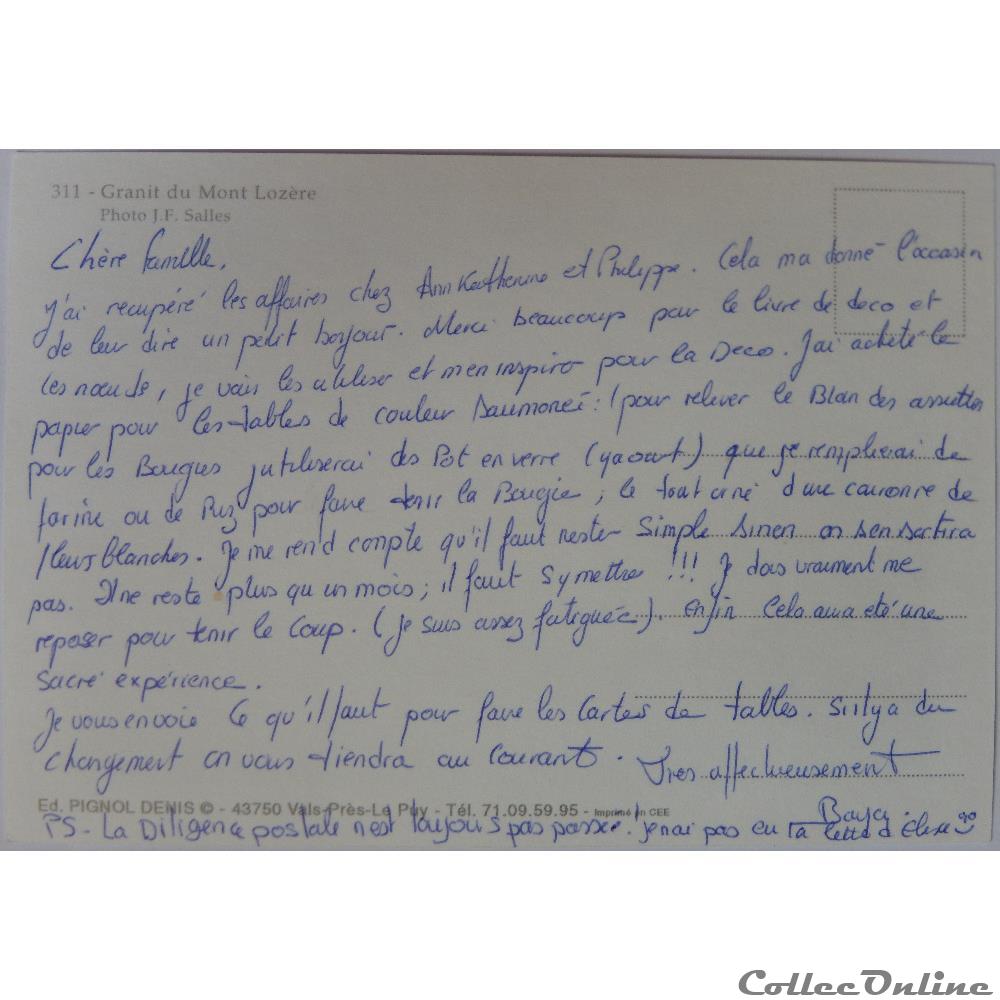 311 - Granit du Mont Lozère
Photo J.F. Salles
Chère famille,
j'ai recupéré les affaires chez Ann Katherine et Philippe. Cela ma donné l'occasion
de leur dire un petit bonjour. Merci beaucoup pour le livre de deco et
les nœuds, je vais les utiliser et men inspirer pour la Deco. J'ai acheté le
papier pour les tables de couleur Saumoneé : (pour relever le Blan des assiettes
pour les Bougies j utiliserai des Pot en verre (yaourt) que je remplierai de
farine ou de Riz pour faire tenir la Bougie ; le tout orné d une couronne de
fleurs blanches. Je me rend compte qu'il faut rester Simple sinon on sen sortira
pas. Il ne reste plus qu un mois ; il faut s y mettre !!! Je dois vraiment me
reposer pour tenir le Coup. (je suis assez fatiguée). enfin Cela aura été une
Sacré expérience.
Je vous envoie Ce qu'il faut pour faire les Cartes de tables. S'il y a du
changement on vous tiendra au Courant. Tres affectueusement
Ed. PIGNOL DENIS © - 43750 Vals-Près-Le Puy - Tél. 71.09.59.95 - Imprimé en CEE
PS - La Diligence postale n'est toujours pas passée. je nai pas eu la lettre d'Elise
CollecOnline